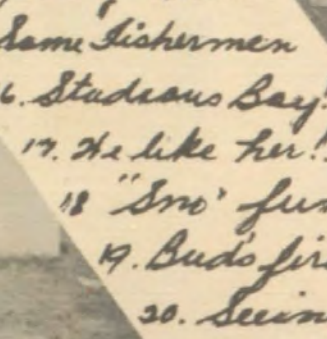 Some Fishermen
6. Studious Boy
17. He like her!
18 "Sno' fun
19. Bud's fir
20. Seein